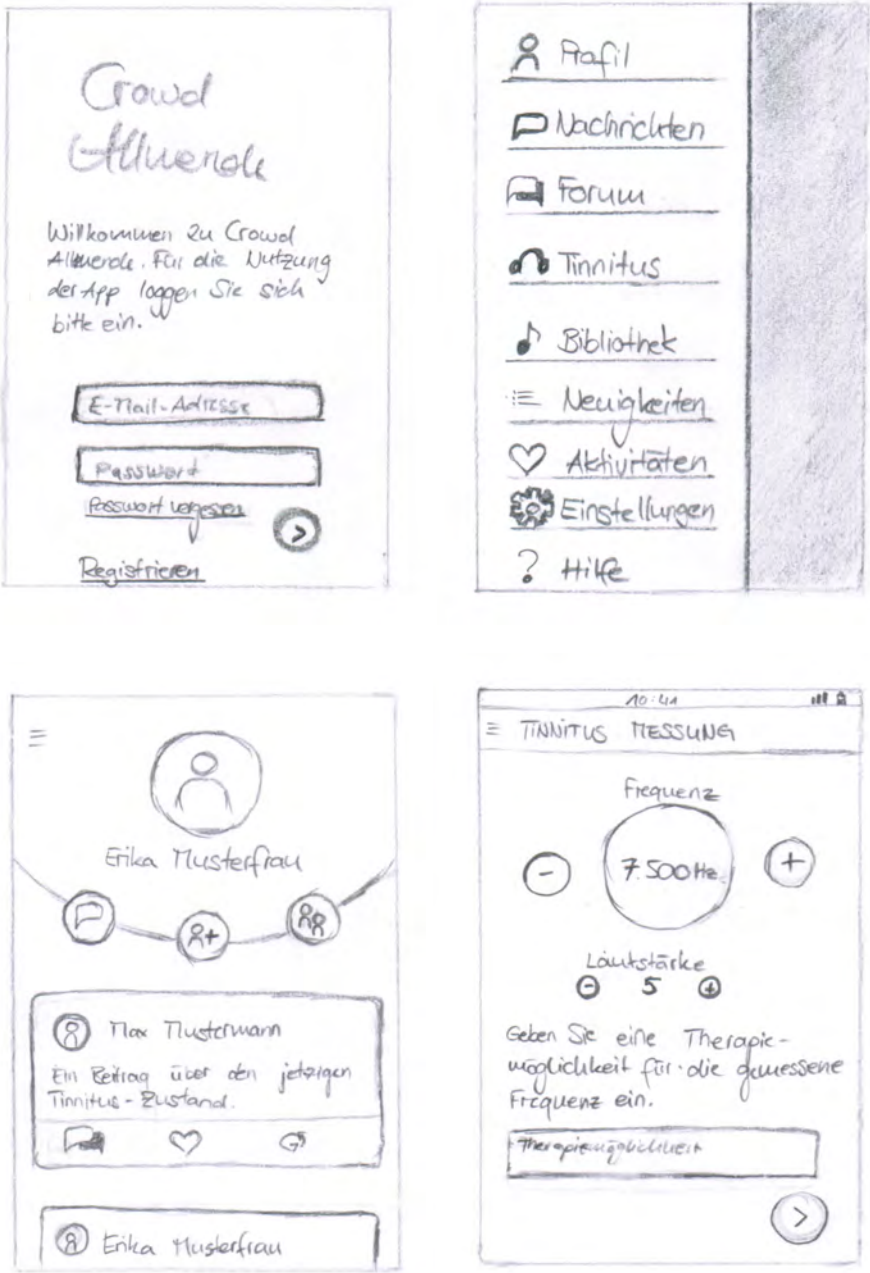 Crowd
Allmende
Willkommen zu Crowd
Allmende. Für die Nutzung
der App loggen Sie sich
bitte ein.
E-Mail-Adresse
Passwort
Passwort vergessen
>
Registrieren
Profil
Nachrichten
Forum
Tinnitus
Bibliothek
Neuigkeiten
Aktivitäten
Einstellungen
? Hilfe
Erika Musterfrau
Max Mustermann
Ein Beitrag über den jetzigen
Tinnitus-Zustand.
Erika Musterfrau
10:41
TINNITUS MESSUNG
Frequenz
- 7.500 Hz +
Lautstärke
- 5 +
Geben Sie eine Therapie-
möglichkeit für die gemessene
Frequenz ein.
Therapiemöglichkeit
>